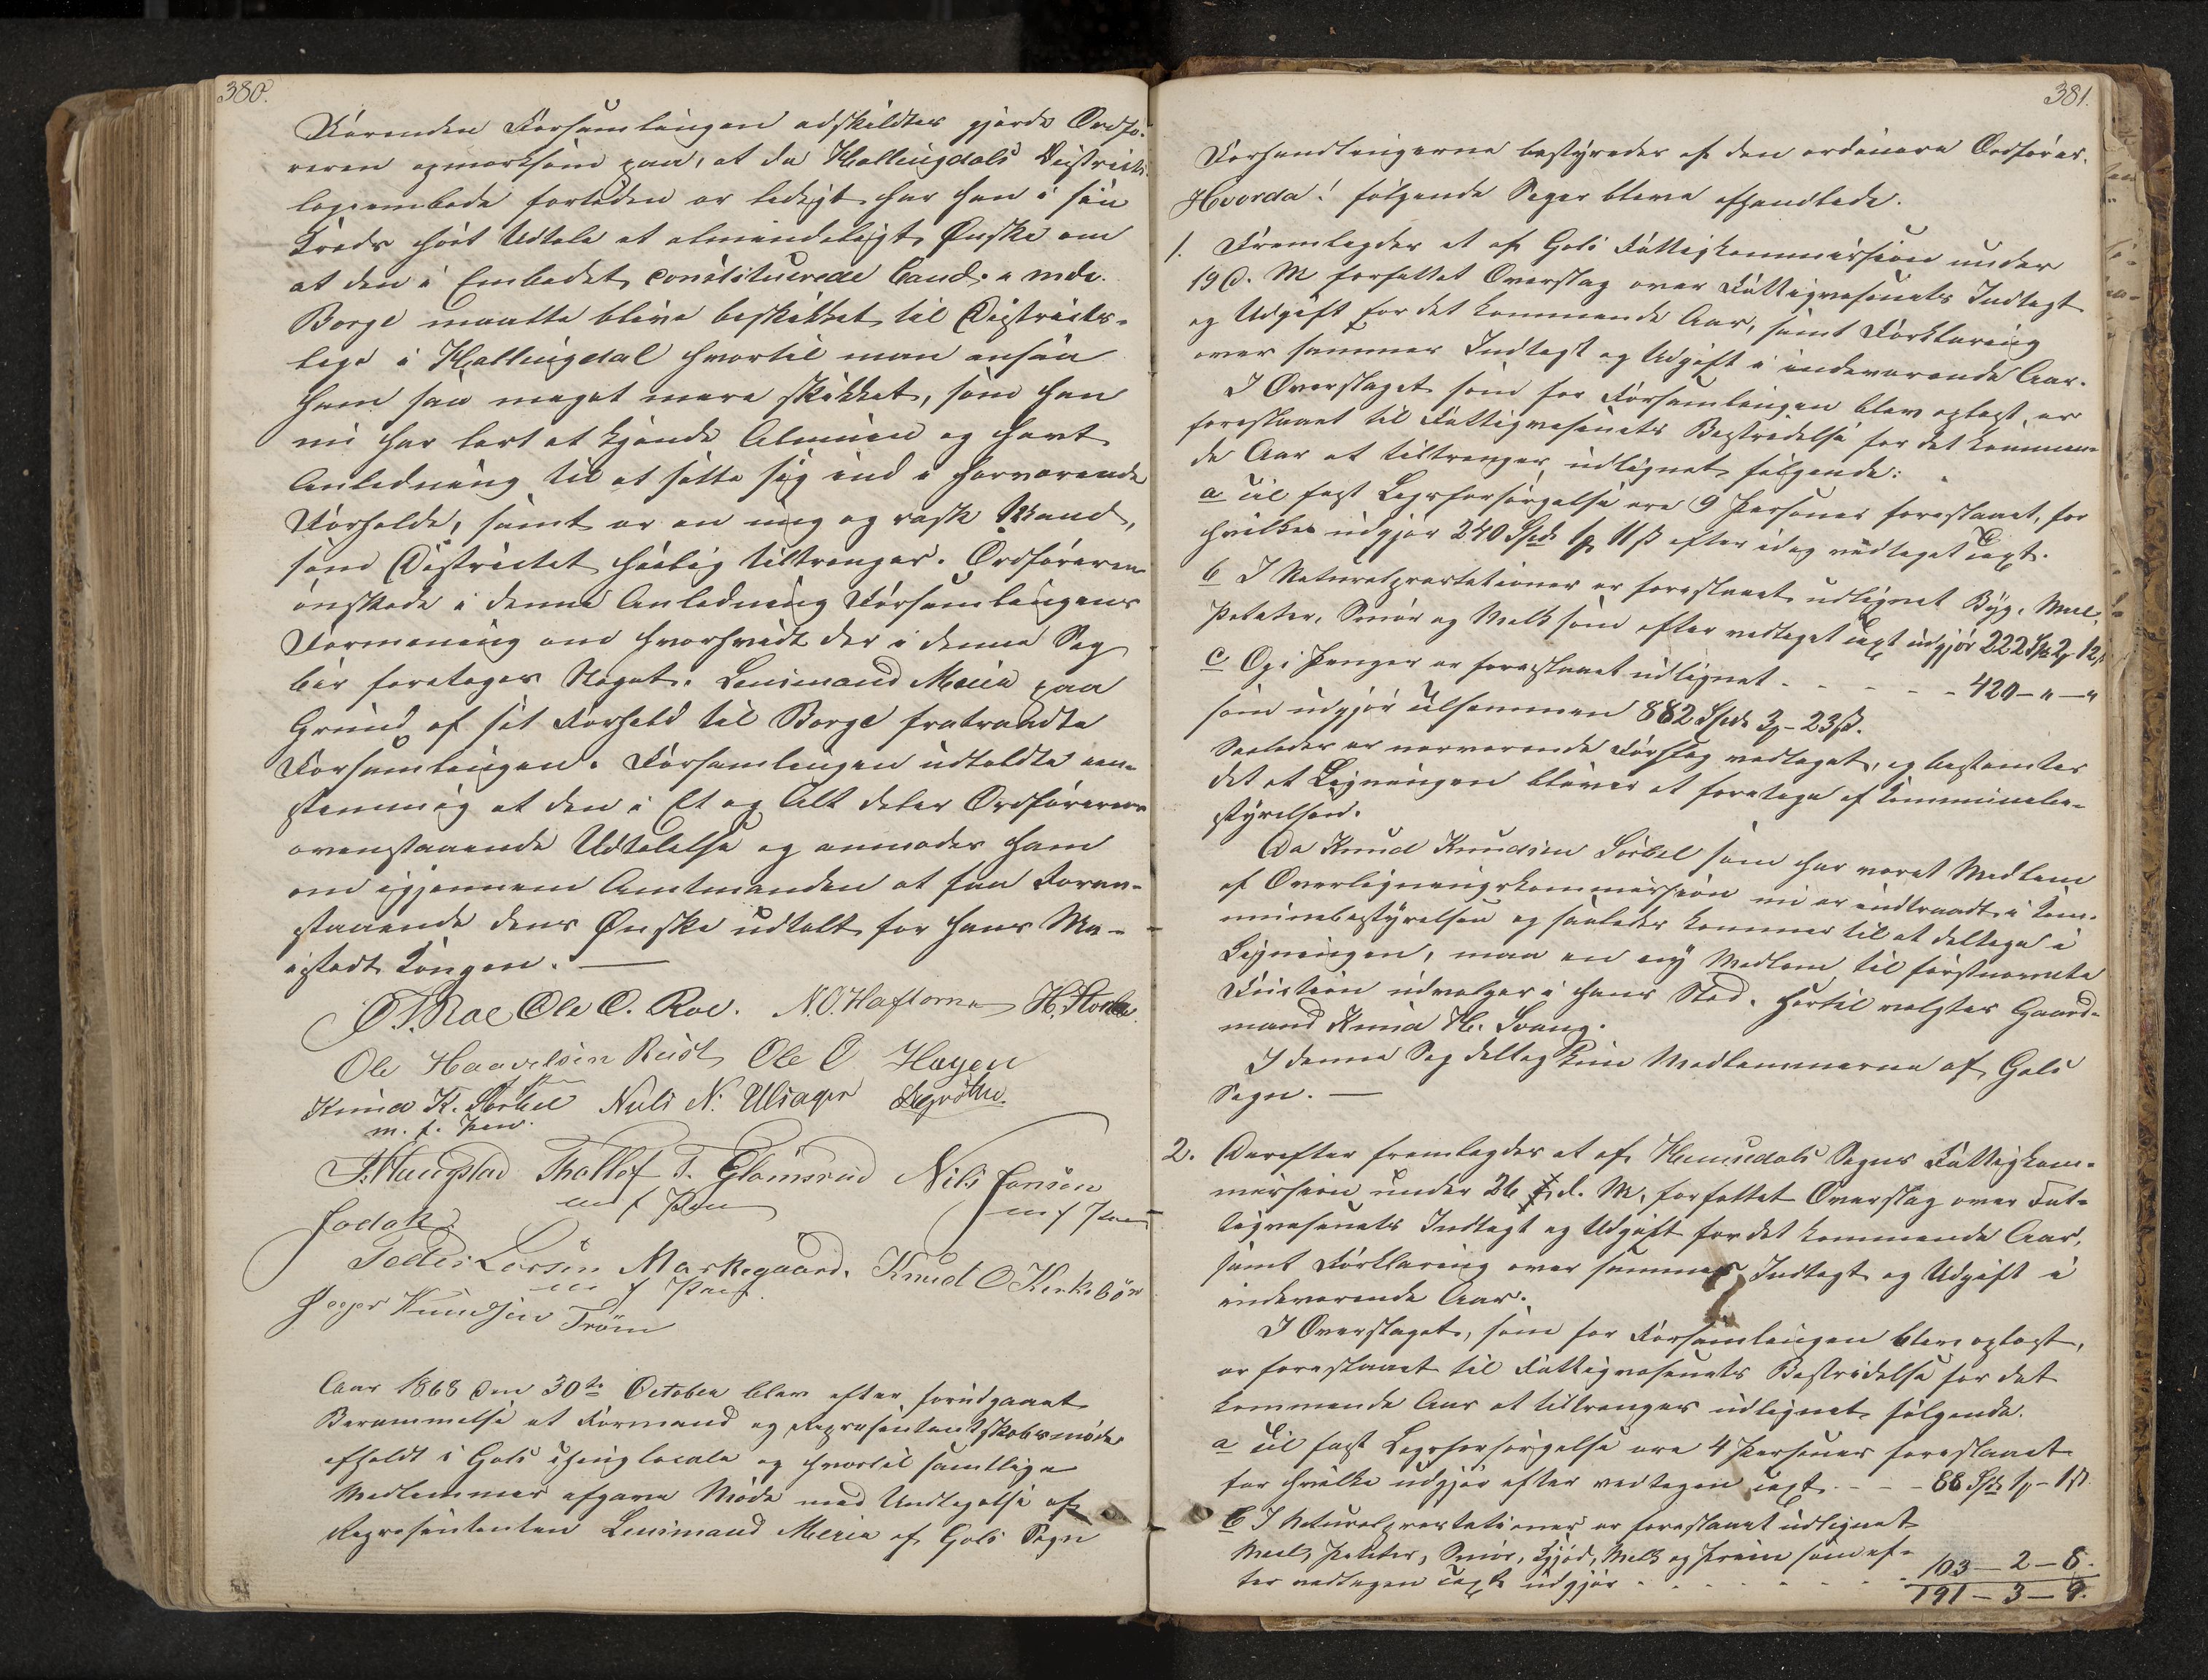 380.
Førenden Forsamlingen adskildtes gjorde Ordfø-
reren opmærksom paa, at da Hallingdals Districts-
lægeembede fortiden er ledigt har han i sin
Kreds hört Udtale et almindeligt Ønske om
at den i Embedet constituerede Cand. med.
Borge maatte blive beskikket til Districts-
læge i Hallingdal hvortil man ansaa
ham saa meget mere skikket, som han
nu har lært at kjende Almuen og havt
Anledning til at sætte sig ind i herværende
Forholde, samt er en ung og rask Mand,
som Districtet höilig tiltrænger. Ordföreren
önskede i denne Anledning Forsamlingens
Formening om hvorhvidt der i denne Sag
bör foretages Noget. Lensmand Meier paa
Grund af sit Forhold til Borge fratraadte
Forsamlingen. Forsamlingen udtalte een-
stemmig at den i Et og Alt deler Ordförerens
ovenstaaende Udtalelse og anmoder ham
om igjennem Amtmanden at faa Foran-
staaende dens Ønske udtalt for Hans Ma-
jestæt Kongen. —
O.T. Roe Ole O. Roe. N.O. Haftorne H. Storla
Ole Haavelsen Ruist Ole O Hagen
Knud K. Sörbel Nils N. Ulsager
m. f. Pen.
Thollef T. Glomsrud Nils Jonsen
m f Pen m f Pen
Peder Larsen Markegaard. Knud O Kirkebön
m f Pen.
Knudsen Tröim
Aar 1868 den 30te October blev efter forudgaaet
Berammelse et Formand og Repræsentantskabsmöde
afholdt i Gols Thinglocale og hvortil samtlige
Medlemmer afgave Möde med Undtagelse af
Repræsentanten Lensmand Meier af Gols Sogn
381.
Forhandlingerne bestyredes af den ordinære Ordförer.
Hvorda! fölgende Sager bleve afhandlede.
1. Fremlagdes et af Gols Fattigkommission under
19 d. M forfattet Overslag over Fattigvæsenets Indtægt
og Udgift for det kommende Aar, samt Forklaring
over sammes Indtægt og Udgift i indeværende Aar.
I Overslaget som for Forsamlingen blev oplæst er
foreslaaet til Fattigvæsenets Bestridelse for det kommen-
de Aar at tiltrænges udlignet fölgende:
a Til fast Lægsforsörgelse ere 9 Personer foreslaaet, for
hvilke udgjör 240 Spd 1 11 ß efter idag vedtaget Taxt.
b I Naturalpræstationer er foreslaaet udlignet Byg, Meel,
Poteter, Smör og Melk som efter vedtaget Taxt udgjör 222 Spd 2 12 ß
c Og i Penger er foreslaaet udlignet - - - - - 420 - " - "
som udgjör tilsammen 882 Spd 3 - 23 ß.
Saaledes er nærværende Forslag vedtaget, og bestemtes
det at Ligningen bliver at foretage af Kommunebe-
styrelsen.
Da Knud Knudsen Sörbel som har været Medlem
af Overligningskommission nu er indtraadt i Kom-
munebestyrelsen og saaledes kommer til at deltage i
Ligningen, maa en ny Medlem til förstnævnte
Function udvælges i hans Sted. Hertil valgtes Gaard-
mand Knud H. Svang.
I denne Sag deltog kun Medlemmerne af Gols
Sogn. —
2. Derefter fremlagdes et af Hemsedals Sogns Fattigkom-
mission under 26 d. M. forfattet Overslag over Fat-
tigvæsenets Indtægt og Udgift for det kommende Aar,
samt Forklaring over sammes Indtægt og Udgift i
indeværende Aar.
I Overslaget, som for Forsamlingen blev oplæst,
er foreslaaet til Fattigvæsenets Bestridelse for det
kommende Aar at tiltrænges udlignet fölgende.
a Til fast Lægsforsörgelse ere 4 Personer foreslaaet
for hvilke udgjör efter vedtagen Taxt - - - 88 Spd 1 - 1 ß
b I Naturalpræstationer er foreslaaet udlignet
Meel, Poteter, Smör, Kjöd, Melk og Priim som ef-
ter vedtagen Taxt udgjör - - - - - - - 103 - 2 - 8.
191 - 3 - 9.